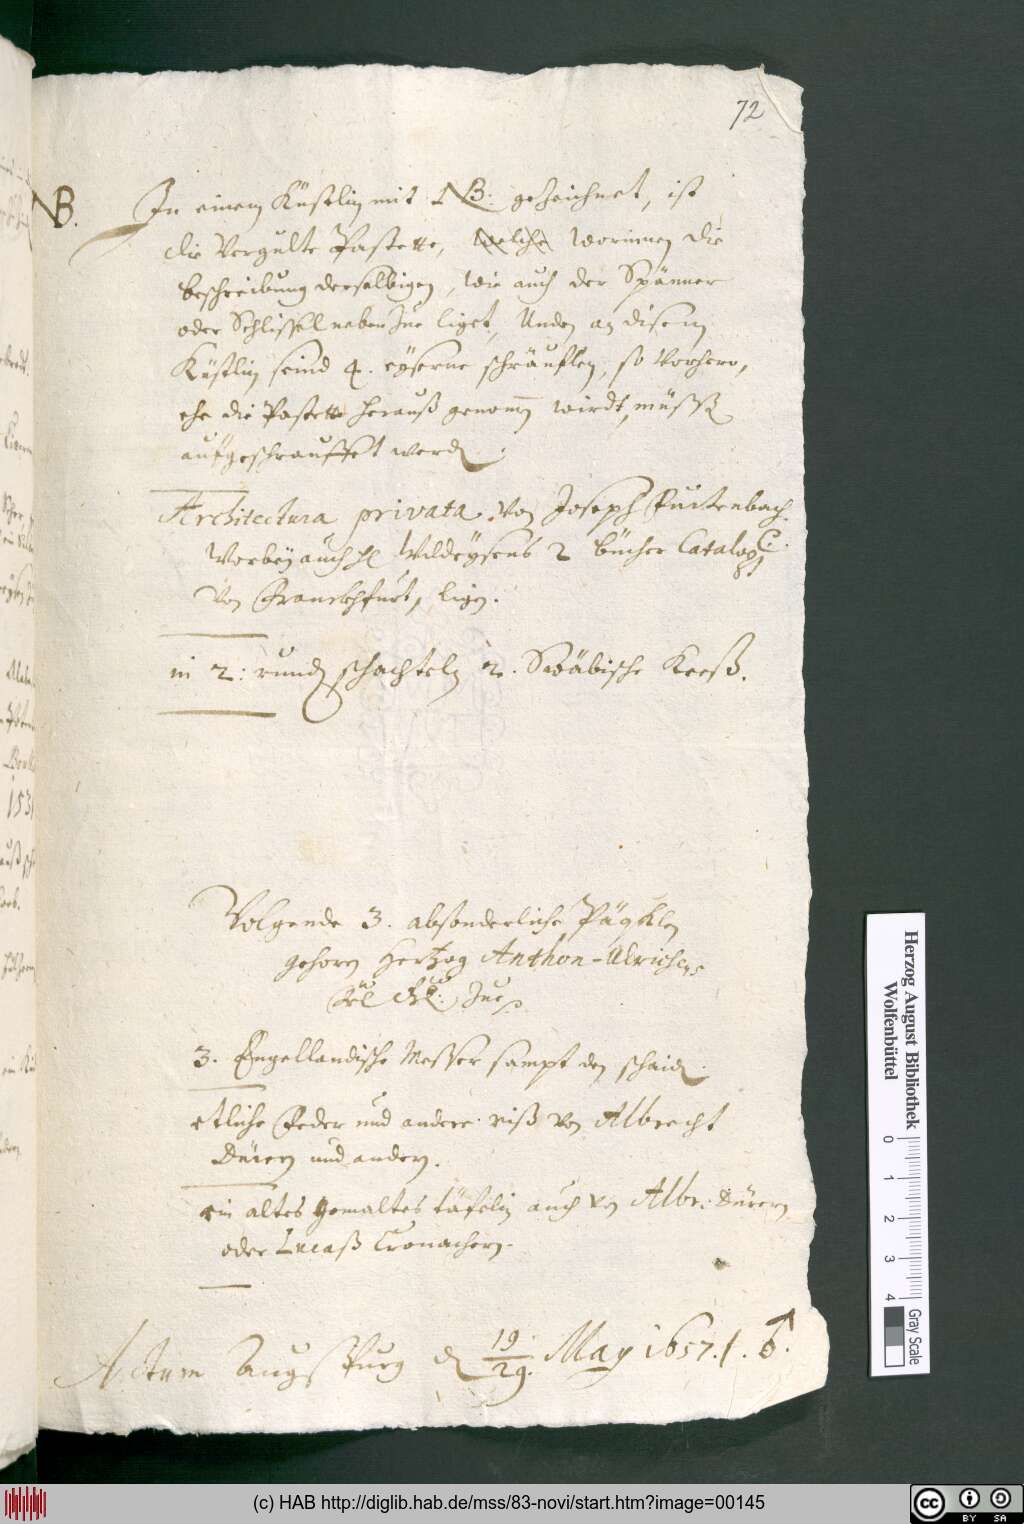 72
NB. In einem Küstlin mit NB: gezeichnet, ist
die Vergulte Pastette, welche worinnen die
beschreibung derselbigen, wie auch der Spänner
oder Schlissel neben Ine liget, Unden an disem
Küstlin seind 4. eyserne schräuflen, so vorhero,
ehe die Pastette herauß genomen wirdt, müssen
aufgeschrauffet werden.
Architectura privata von Joseph Furtenbach.
Vorbey auch H Wildeysens 2 bücher Catalogi
von Franckhfurt, ligen.
in 2: runden schachteln 2. Swäbische Keeß.
Volgende 3. absonderliche Päcklen
gehoren Hertzog Anthon-Ulrichens
3. Engellandische Messer sampt den schaiden.
etliche Feder und andere riß von Albrecht
Dürern und andern.
ein altes gemaltes täfelin auch von Albr: Dürern
oder Lucaß Cronachern.
Actum Augspurg den 19/29. May 1657. ♂.
Herzog August Bibliothek
Wolfenbüttel
0 1 2 3 4
Gray Scale
(c) HAB http://diglib.hab.de/mss/83-novi/start.htm?image=00145
cc BY SA